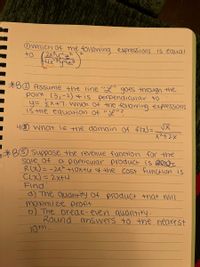 ① Which of the following expressions is equal
to
*B② Assume the line "L" goes through the
point (3,-2) & is perpendicular to
y= x+7. What of the following expressions
is the equation of "L"?
4③ What is the domain of f(x)= √x
x²+2x
*B⑤ Suppose the revenue function for the
sale of a particular product is
R(x) = -2x²+10x+4 & the cost function is
C(x) = 2x+4
Find
a) The quantity of product that will
maximize profit
b) The break-even quantity.
Round answers to the nearest
10th